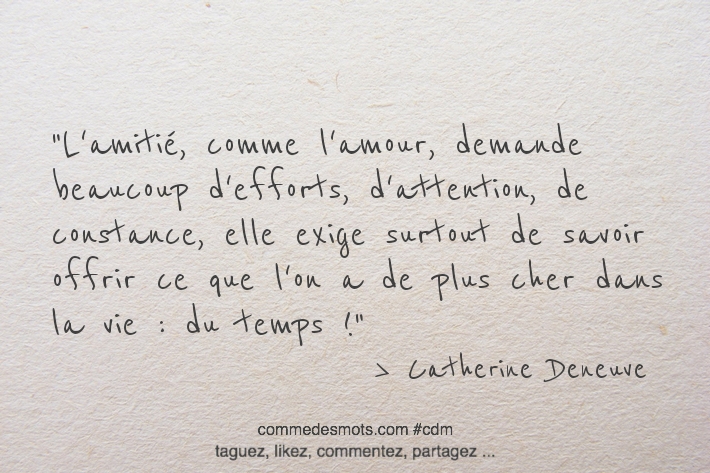 "L'amitié, comme l'amour, demande
beaucoup d'efforts, d'attention, de
constance, elle exige surtout de savoir
offrir ce que l'on a de plus cher dans
la vie : du temps !"
> Catherine Deneuve
commedesmots.com #cdm
taguez, likez, commentez, partagez ...